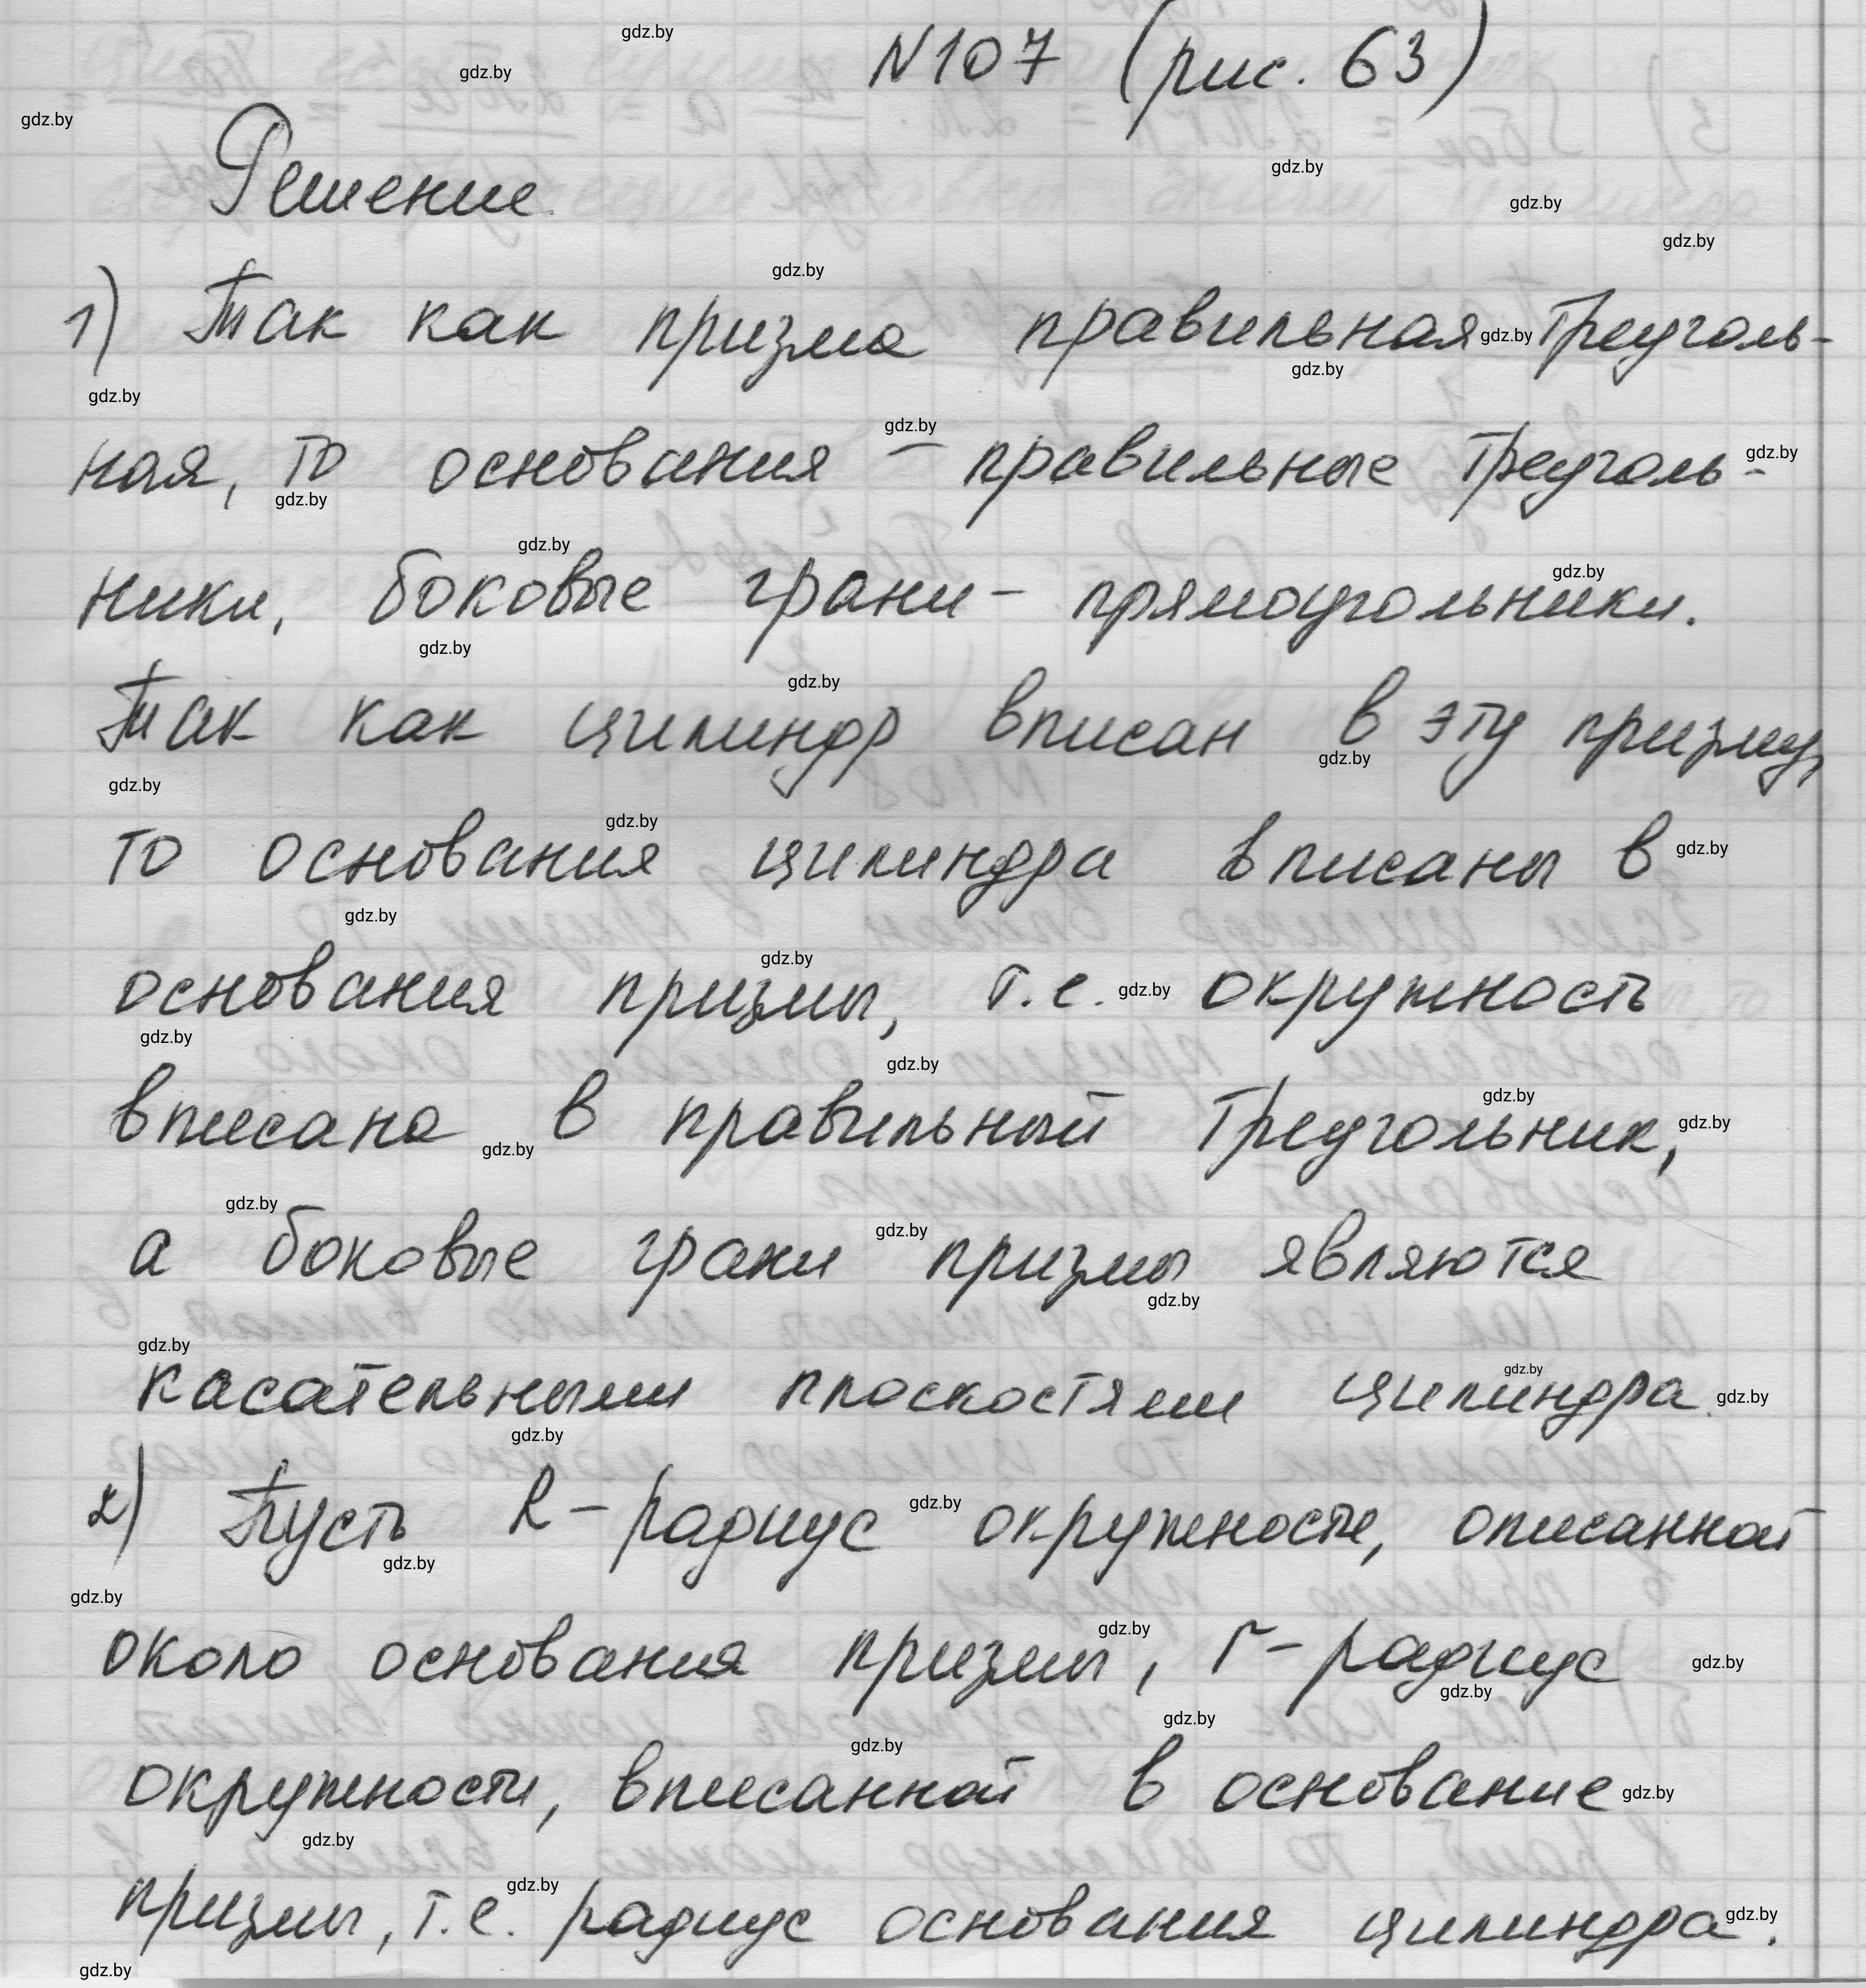 N107 (рис. 63)
Решение.
1) Так как призма правильная треуголь-
ная, то основания - правильные треуголь-
ники, боковые грани - прямоугольники.
Так как цилиндр вписан в эту призму,
то основания цилиндра вписаны в
основания призмы, т.е. окружность
вписана в правильный треугольник,
а боковые грани призмы являются
касательными плоскостями цилиндра.
2) Пусть R - радиус окружности, описанной
около основания призмы, r - радиус
окружности, вписанной в основание
призмы, т.е. радиус основания цилиндра.
gdz.by